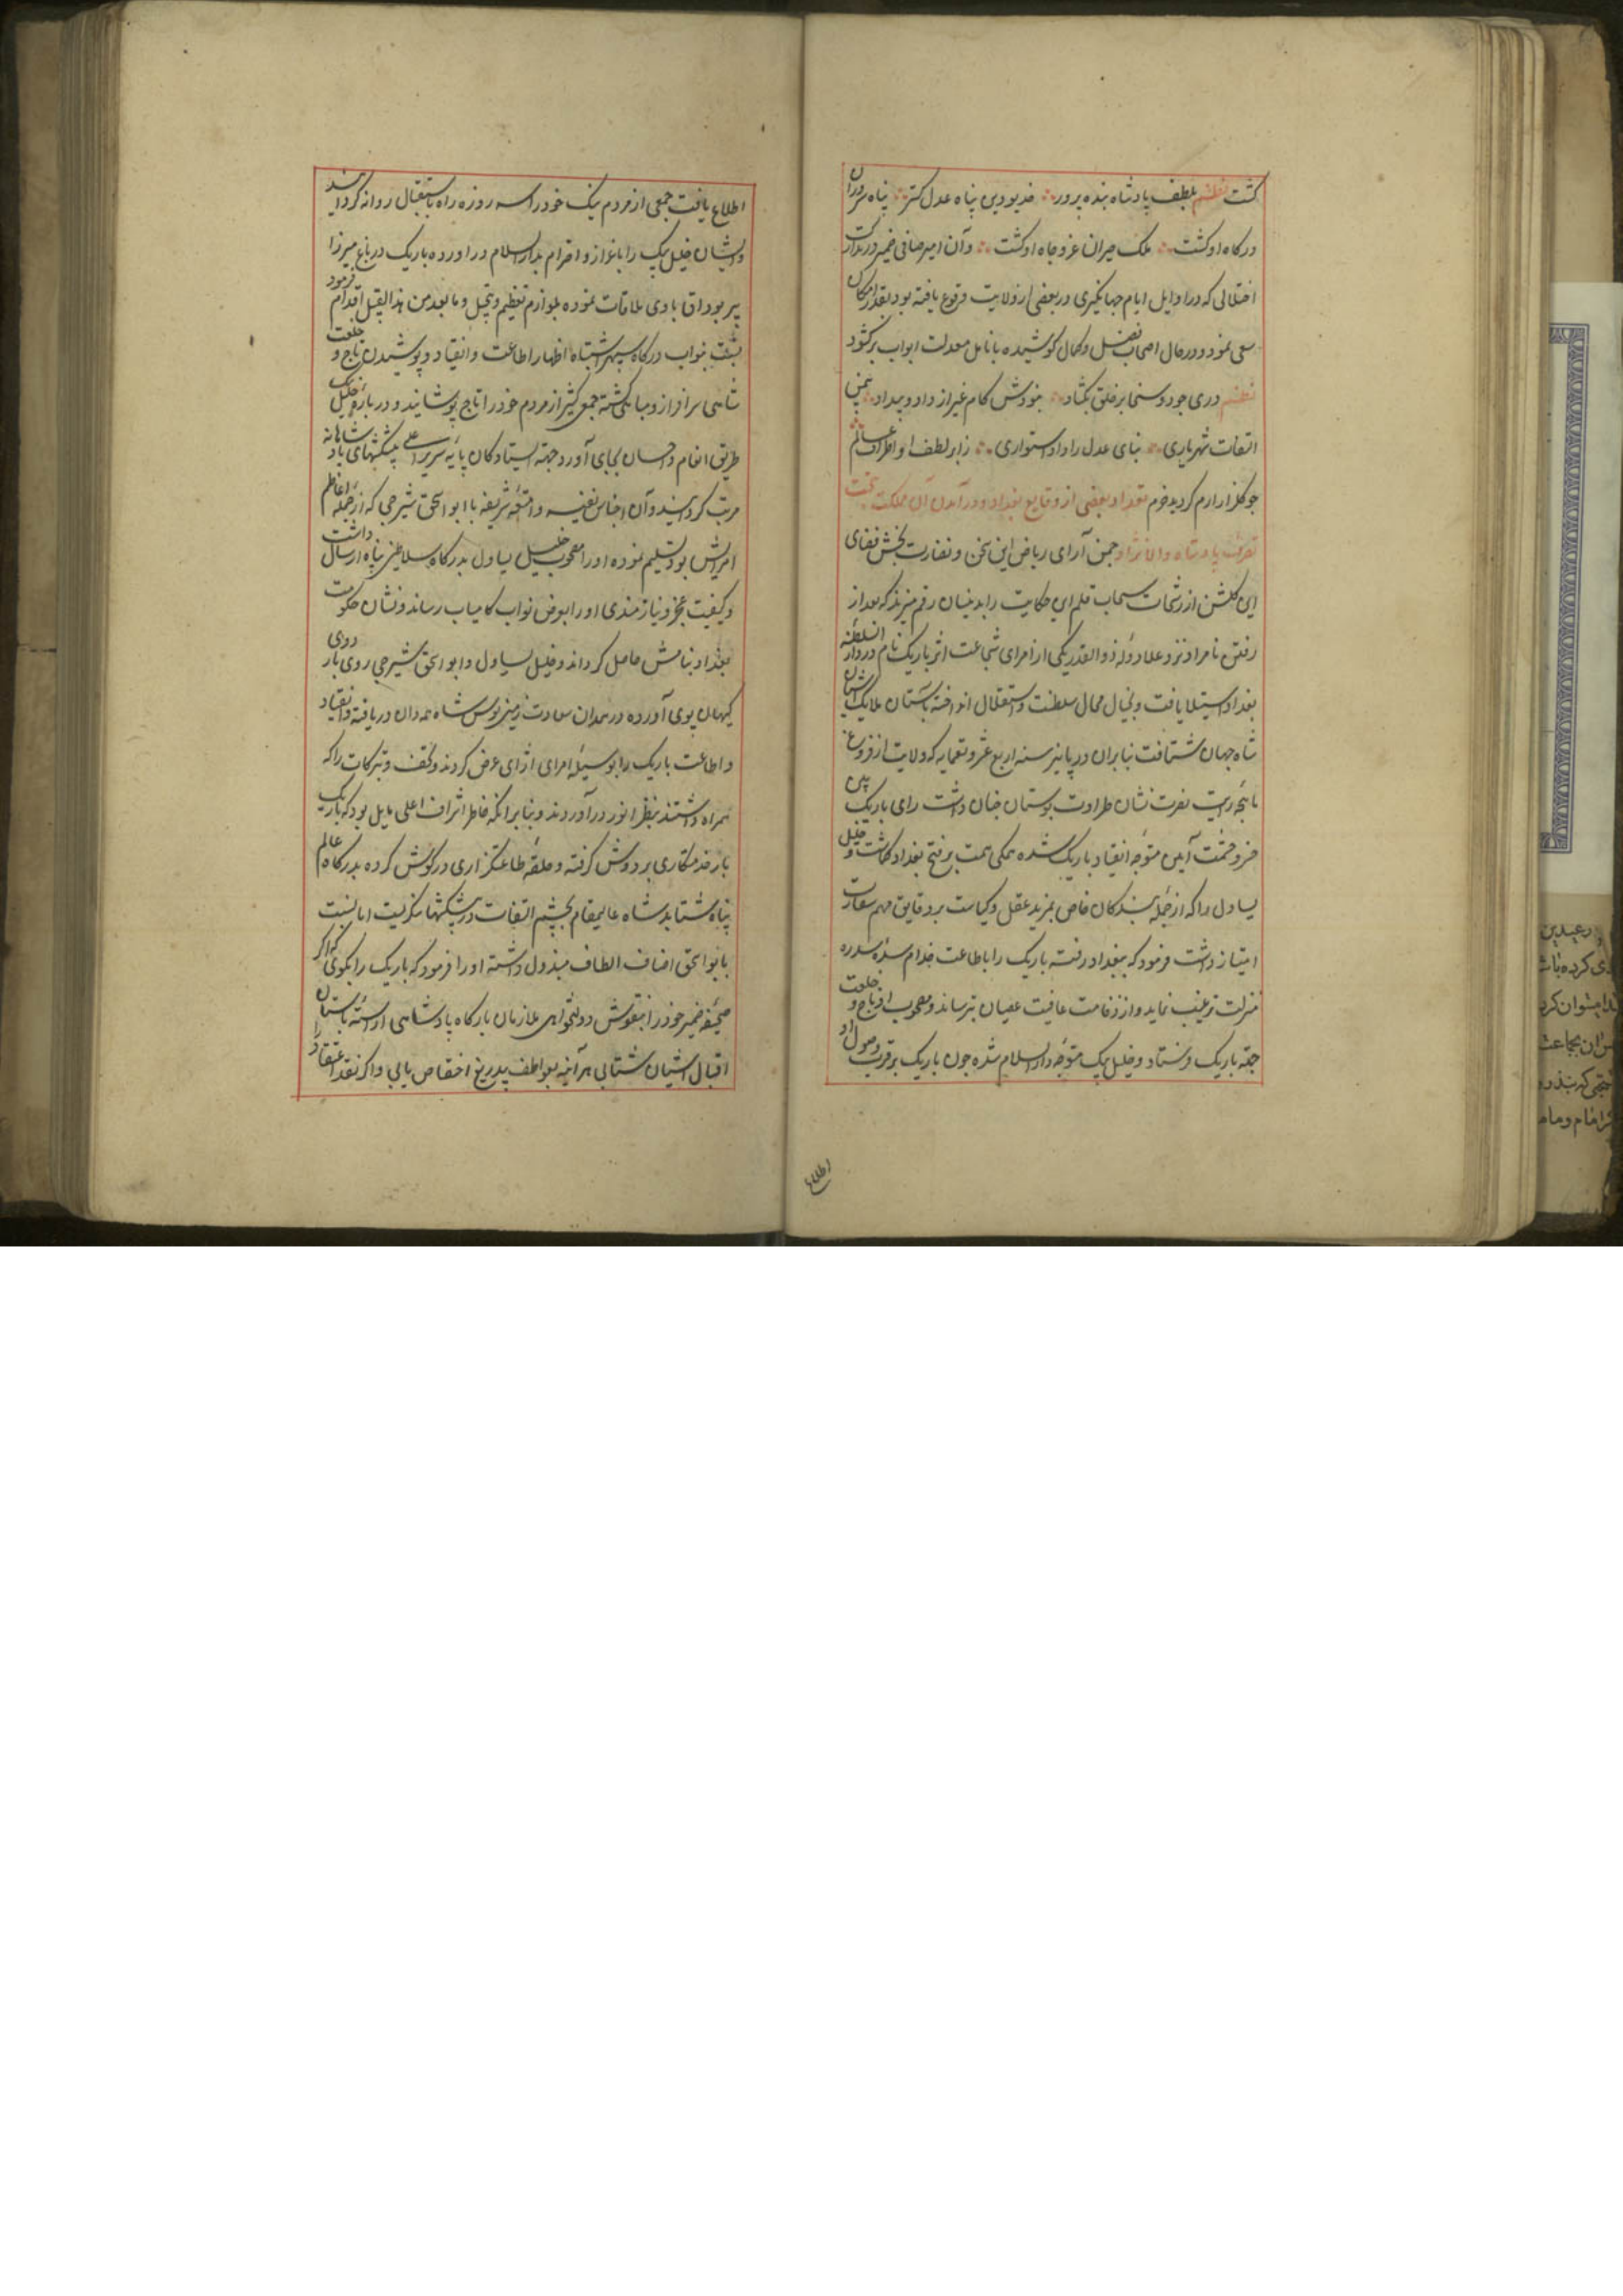 گشت نظم بلطف پادشاه بنده پرور خدیو دین پناه عدل گستر پناه سروران
درگاه او گشت ملک حیران عز و جاه او گشت و آن امیر صافی ضمیر در تدارک
اختلالی که در اوایل ایام جهانگیری در بعضی از ولایت وقوع یافته بود بقدر امکان
سعی نمود و در حال اصحاب فضل و کمال کوشیده بانامل معدلت ابواب برگشود
نظم دری جود و سخا بر خلق بگشاد نبودش کام غیر از داد و بیداد بیمن
التفات شهریاری بنای عدل را داد استواری ز ابر لطف او اطراف عالم
چو گلزار ارم گردید خرم تعداد بعضی از وقایع بغداد و در آمدن آن مملکت بتحت
تصرف پادشاه والانژاد چمن آرای ریاض این سخن و نضارت بخش فضای
این گلشن از رشحات سحاب قلم این حکایت را بدینسان رقم میزند که بعد از
رفتن نامراد نزد علاء دوله ذوالقدر یکی از امرای شجاعت اثر باریک نام در دار السلطنه
بغداد استیلا یافت و بخیال محال سلطنت و استقلال افتاده بآستان ملایک آشیان
شاه جهان نشتافت بنابران در پاییز سنه اربع عشر و تسعمایه که ولایت از فروغ
ماهچه رایت نصرت نشان طراوت بوستان جنان داشت رای باریک بین
خسرو حشمت آیین متوجه انقیاد باریک شده همگی همت بر فتح بغداد گماشت و خلیل
یساول را که از جمله بندگان خاص بمزید عقل و کیاست بر دقایق مهم سفارت
امتیاز داشت فرمود که ببغداد رفته باریک را باطاعت خدام سده سدره
منزلت ترغیب نماید و از وخامت عاقبت عصیان بترساند و مصحوب او تاج و خلعت
جهة باریک فرستاد و خلیل بیک متوجه دار السلام شده چون باریک بر قرب وصول او
اطلاع
اطلاع یافت جمعی از مردم نیک خود را سه روزه راه باستقبال روانه گردانید
و ایشان خلیل بیک را باعزاز و احترام بدار السلام در آورده باریک در باغ میرزا
پیر بوداق با وی ملاقات نموده بلوازم تعظیم و تبجیل و ما یعد من هذا القبیل اقدام فرمود
بشفقت نواب درگاه سپهر اشتباه اظهار اطاعت و انقیاد و پوشیدن تاج و خلعت
شاهی سرافراز و مباهی گشته جمعی کثیر از مردم خود را تاج پوشانید و درباره خلیل بیک
طریق انعام و احسان بجای آورد و جهة ایستادگان پایه سریر اعلی پیشکشهای پادشاهانه
مرتب گردانید و آن اجناس نفیسه و امتعه شریفه با ابو اسحق شیرجی که از جمله اعاظم
امرایش بود تسلیم نموده او را مصحوب خلیل یساول بدرگاه سلاطین پناه ارسال داشت
و کیفیت عجز و نیازمندی او را بعرض نواب کامیاب رساند و نشان حکومت
بغداد بنامش حاصل گرداند و خلیل یساول و ابو اسحق شیرجی روی باردوی
کیهان پوی آورده در همدان سعادت زمین بوس شاه همه دان دریافته و انقیاد
و اطاعت باریک را بوسیله امرای عرض کردند و تحف و تبرکات را که
همراه داشتند بنظر انور در آوردند و بنا بر آنکه خاطر اشرف اعلی مایل بود که باریک
بار خدمتکاری بر دوش گرفته و حلقه طاعتگزاری در گوش کرده بدرگاه عالم
پناه شتابد شاه عالیمقام بچشم التفات در پیشکشها ننگریست اما نسبت
بابو اسحق اصناف الطاف مبذول داشته او را فرمود که باریک را بگوی که اگر
صحیفه ضمیر خود را بنقوش دولتخواهی ملازمان بارگاه پادشاهی آراسته بآستان
اقبال آشیان شتابی هر آینه بعواطف بیدریغ اختصاص یابی و اگر نقد اعتقاد را